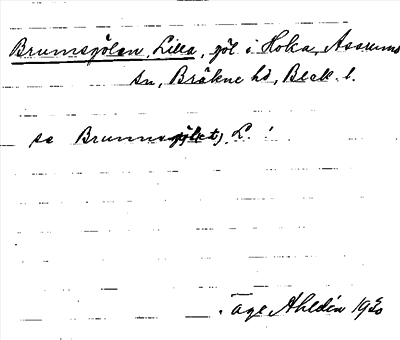 Brumsgölen, Lilla, göl i Hoka, Asarums
sn, Bräkne hd, Blek. l.
se Brumsgölen, L.
Tage Ahldén 1930